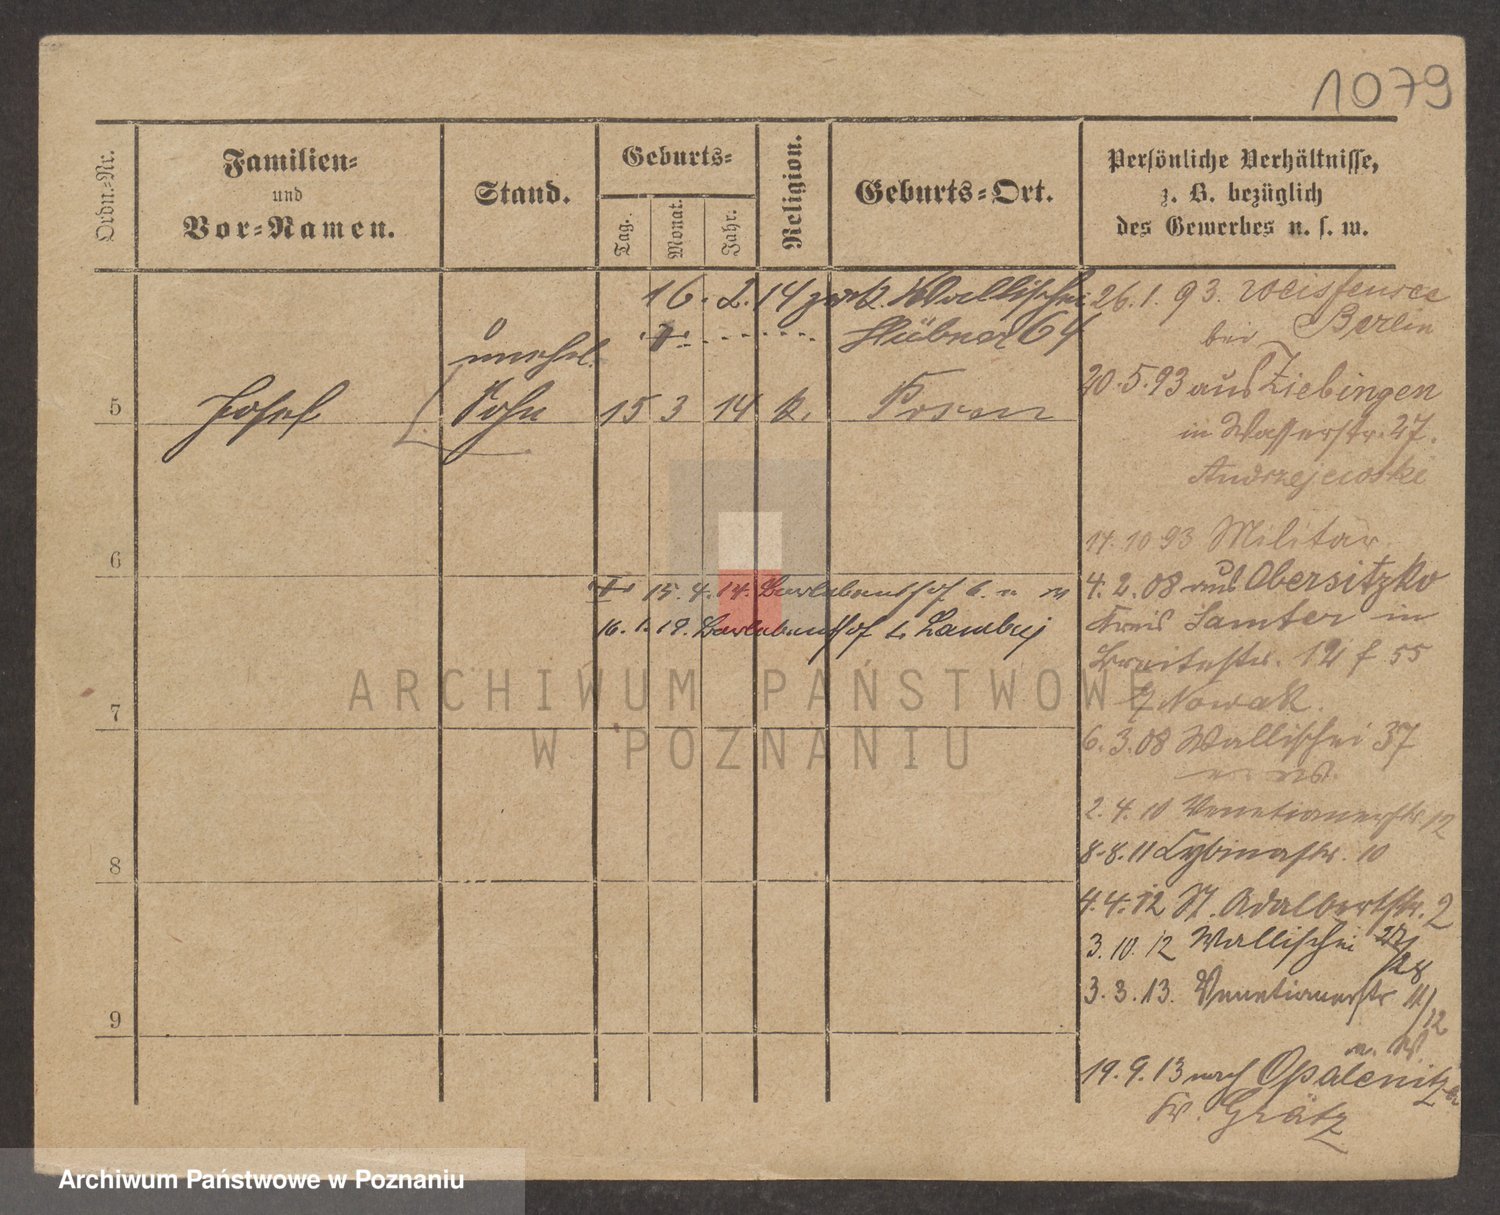 1079
Ordn.-Nr.
Familien-
und
Vor-Namen.
Stand.
Geburts-
Tag.
Monat.
Jahr.
Religion.
Geburts-Ort.
Persönliche Verhältnisse,
z. B. bezüglich
des Gewerbes u. s. w.
16. 2. 14 zurk. Wallischei
Hübner 64
5
Josef
unehel.
Sohn
15 3 14 k. Posen
6
15. 4. 14.
16. 1. 18.
7
8
9
26. 1. 93. Weissensee
bei Berlin
20. 5. 93 aus Ziebingen
in Wasserstr. 27.
Andrzejewski
17. 10 93 Militär.
4. 2. 08 aus Obersitzko
Kreis Samter in
Breitestr. 12 f 55
Nowak.
6. 3. 08 Wallischei 37
2. 4. 10 Venetianerstr. 12
8. 8. 11 Cybinastr. 10
4. 4. 12 St. Adalbertstr. 2
3. 10. 12 Wallischei 27/28
3. 3. 13. Venetianerstr 11/12
19. 9. 13 nach Opalenitza
Kr. Grätz
ARCHIWUM PAŃSTWOWE
W POZNANIU
Archiwum Państwowe w Poznaniu